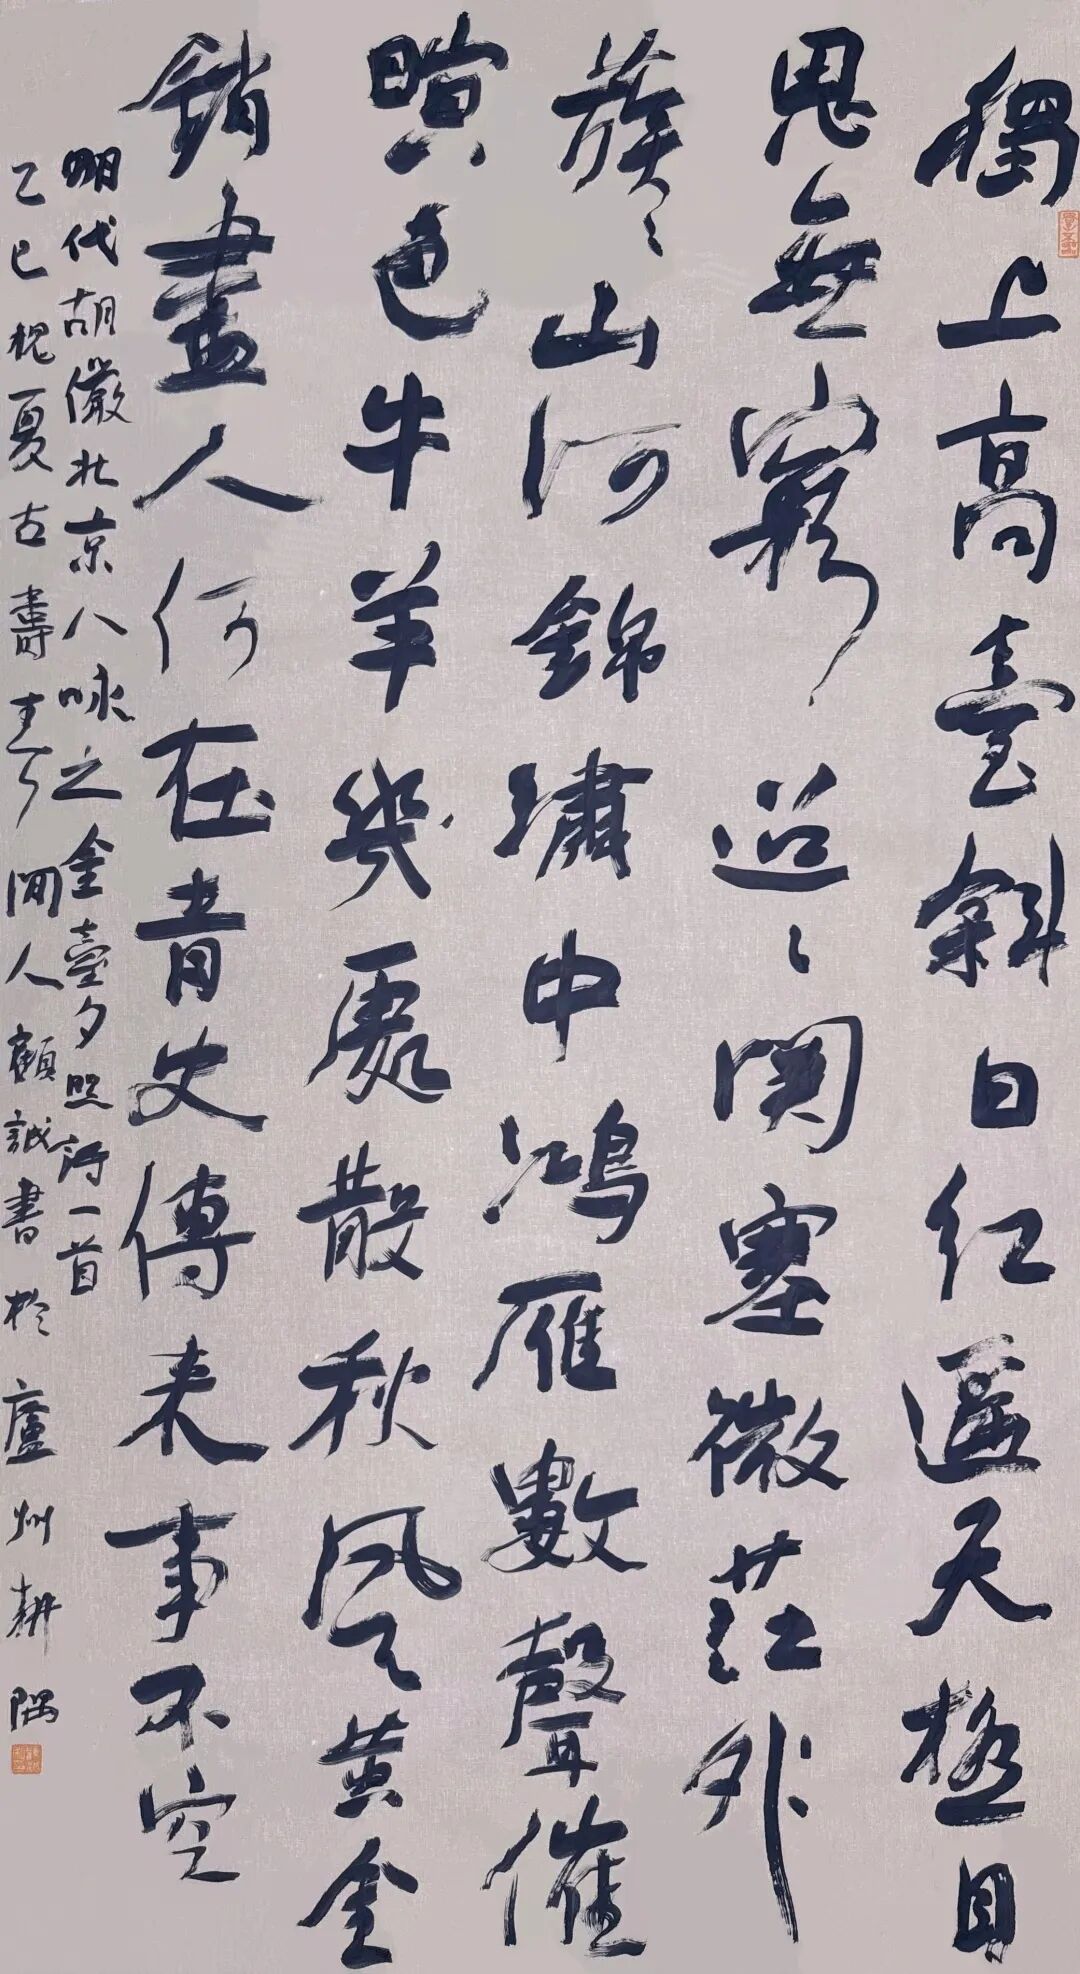 獨上高臺斜日紅遥天極目
思無窮迢〻関塞微茫外
簇〻山河錦繡中鴻雁數聲催
暝色牛羊幾處散秋風黄金
銷盡人何在青史傳来事不空
明代胡儼北京八咏之金臺夕照詩一首
乙巳槐夏古壽春閒人顧誠書於廬州耕隅